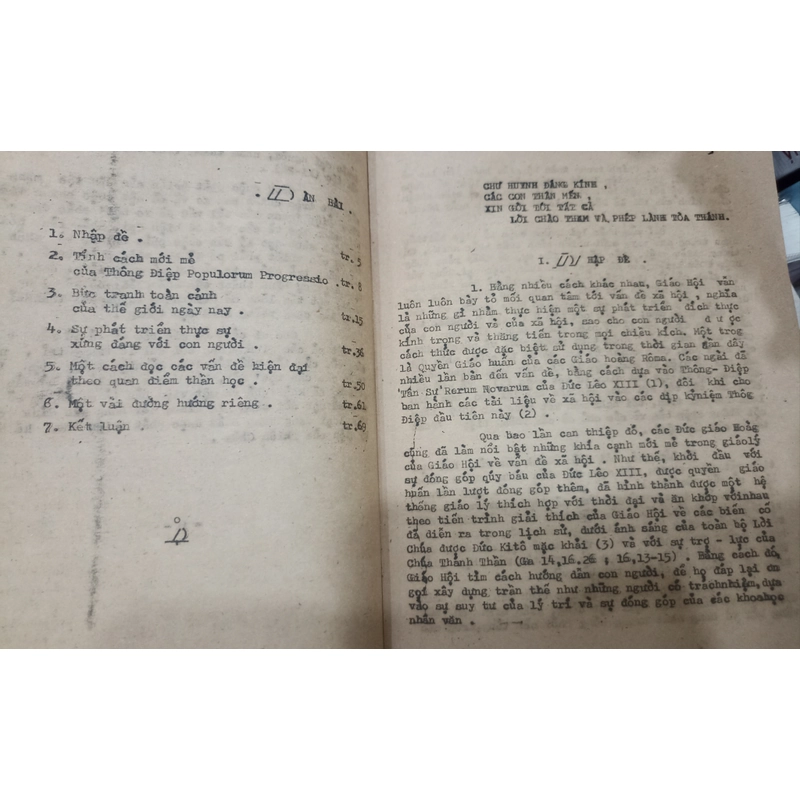 DÀN BÀI .
1. Nhập đề .
tr. 5
2. Tính cách mới mẻ
của Thông Điệp Populorum Progressio . tr. 8
3. Bức tranh toàn cảnh
của thế giới ngày nay .
tr.15
4. Sự phát triển thực sự
xứng đáng với con người .
tr.36
5. Một cách đọc các vấn đề hiện đại
theo quan điểm thần học .
tr.50
6. Một vài đường hướng riêng .
tr.61
7. Kết luận .
tr.69
CHƯ HUYNH ĐÁNG KÍNH ,
CÁC CON THÂN MẾN ,
XIN GỬI TỚI TẤT CẢ
LỜI CHÀO THĂM VÀ PHÉP LÀNH TÒA THÁNH.
I. NHẬP ĐỀ .
1. Bằng nhiều cách khác nhau, Giáo Hội vẫn
luôn luôn bày tỏ mối quan tâm tới vấn đề xã hội , nghĩa
là những gì nhằm thực hiện một sự phát triển đích thực
của con người và của xã hội, sao cho con người được
kính trọng và thăng tiến trong mọi chiều kích. Một trog
cách thức được đặc biệt sử dụng trong thời gian gần đây
là Quyền Giáo huấn của các Giáo hoàng Rôma. Các ngài đã
nhiều lần bàn đến vấn đề, bằng cách dựa vào Thông- Điệp
'Tân Sự' Rerum Novarum của Đức Lêo XIII (1), đôi khi cho
ban hành các tài liệu về xã hội vào các dịp kỷniệm Thôg
Điệp đầu tiên này (2) .
Qua bao lần can thiệp đó, các Đức giáo Hoàng
cũng đã làm nổi bật những khía cạnh mới mẻ trong giáolý
của Giáo Hội về vấn đề xã hội . Như thế, khởi đầu với
sự đóng góp qúy báu của Đức Lêo XIII, được quyền giáo
huấn lần lượt đóng góp thêm, đã hình thành được một hệ
thống giáo lý thích hợp với thời đại và ăn khớp vớinhau
theo tiến trình giải thích của Giáo Hội về các biến cố
đã diễn ra trong lịch sử, dưới ánh sáng của toàn bộ Lời
Chúa được Đức Kitô mặc khải (3) và với sự trợ - lực của
Chúa Thánh Thần (Ga 14,16.26 ; 16,13-15) . Bằng cách đó,
Giáo Hội tìm cách hướng dẫn con người, để họ đáp lại ơn
gọi xây dựng trần thế như những người có tráchnhiệm,dựa
vào sự suy tư của lý trí và sự đóng góp của các khoahọc
nhân văn .